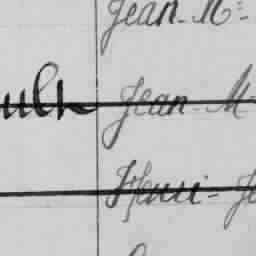 Jean-M:
ult Jean-M
Henri-Je